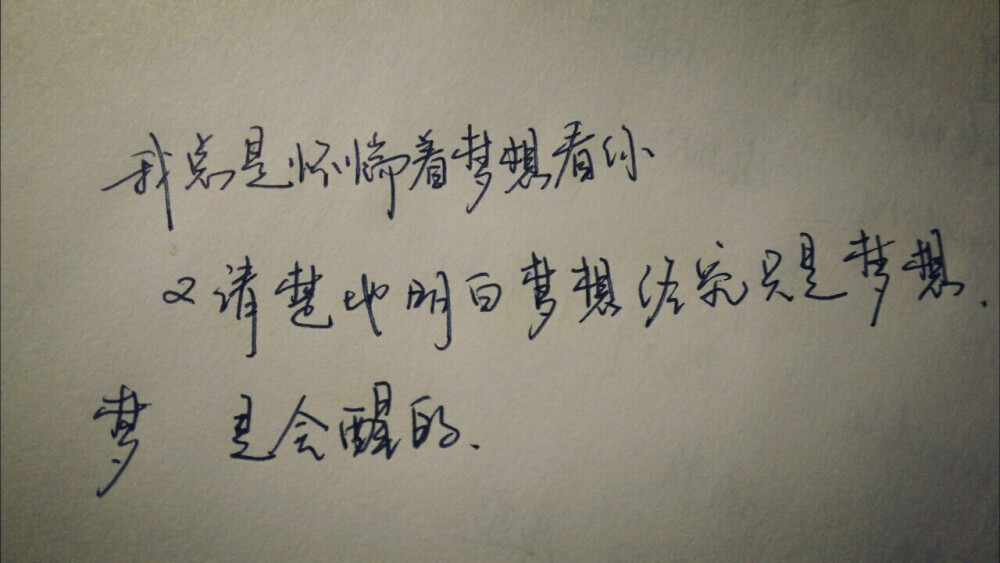 我总是怀惴着梦想看你
又清楚地明白梦想终究只是梦想.
梦 是会醒的.